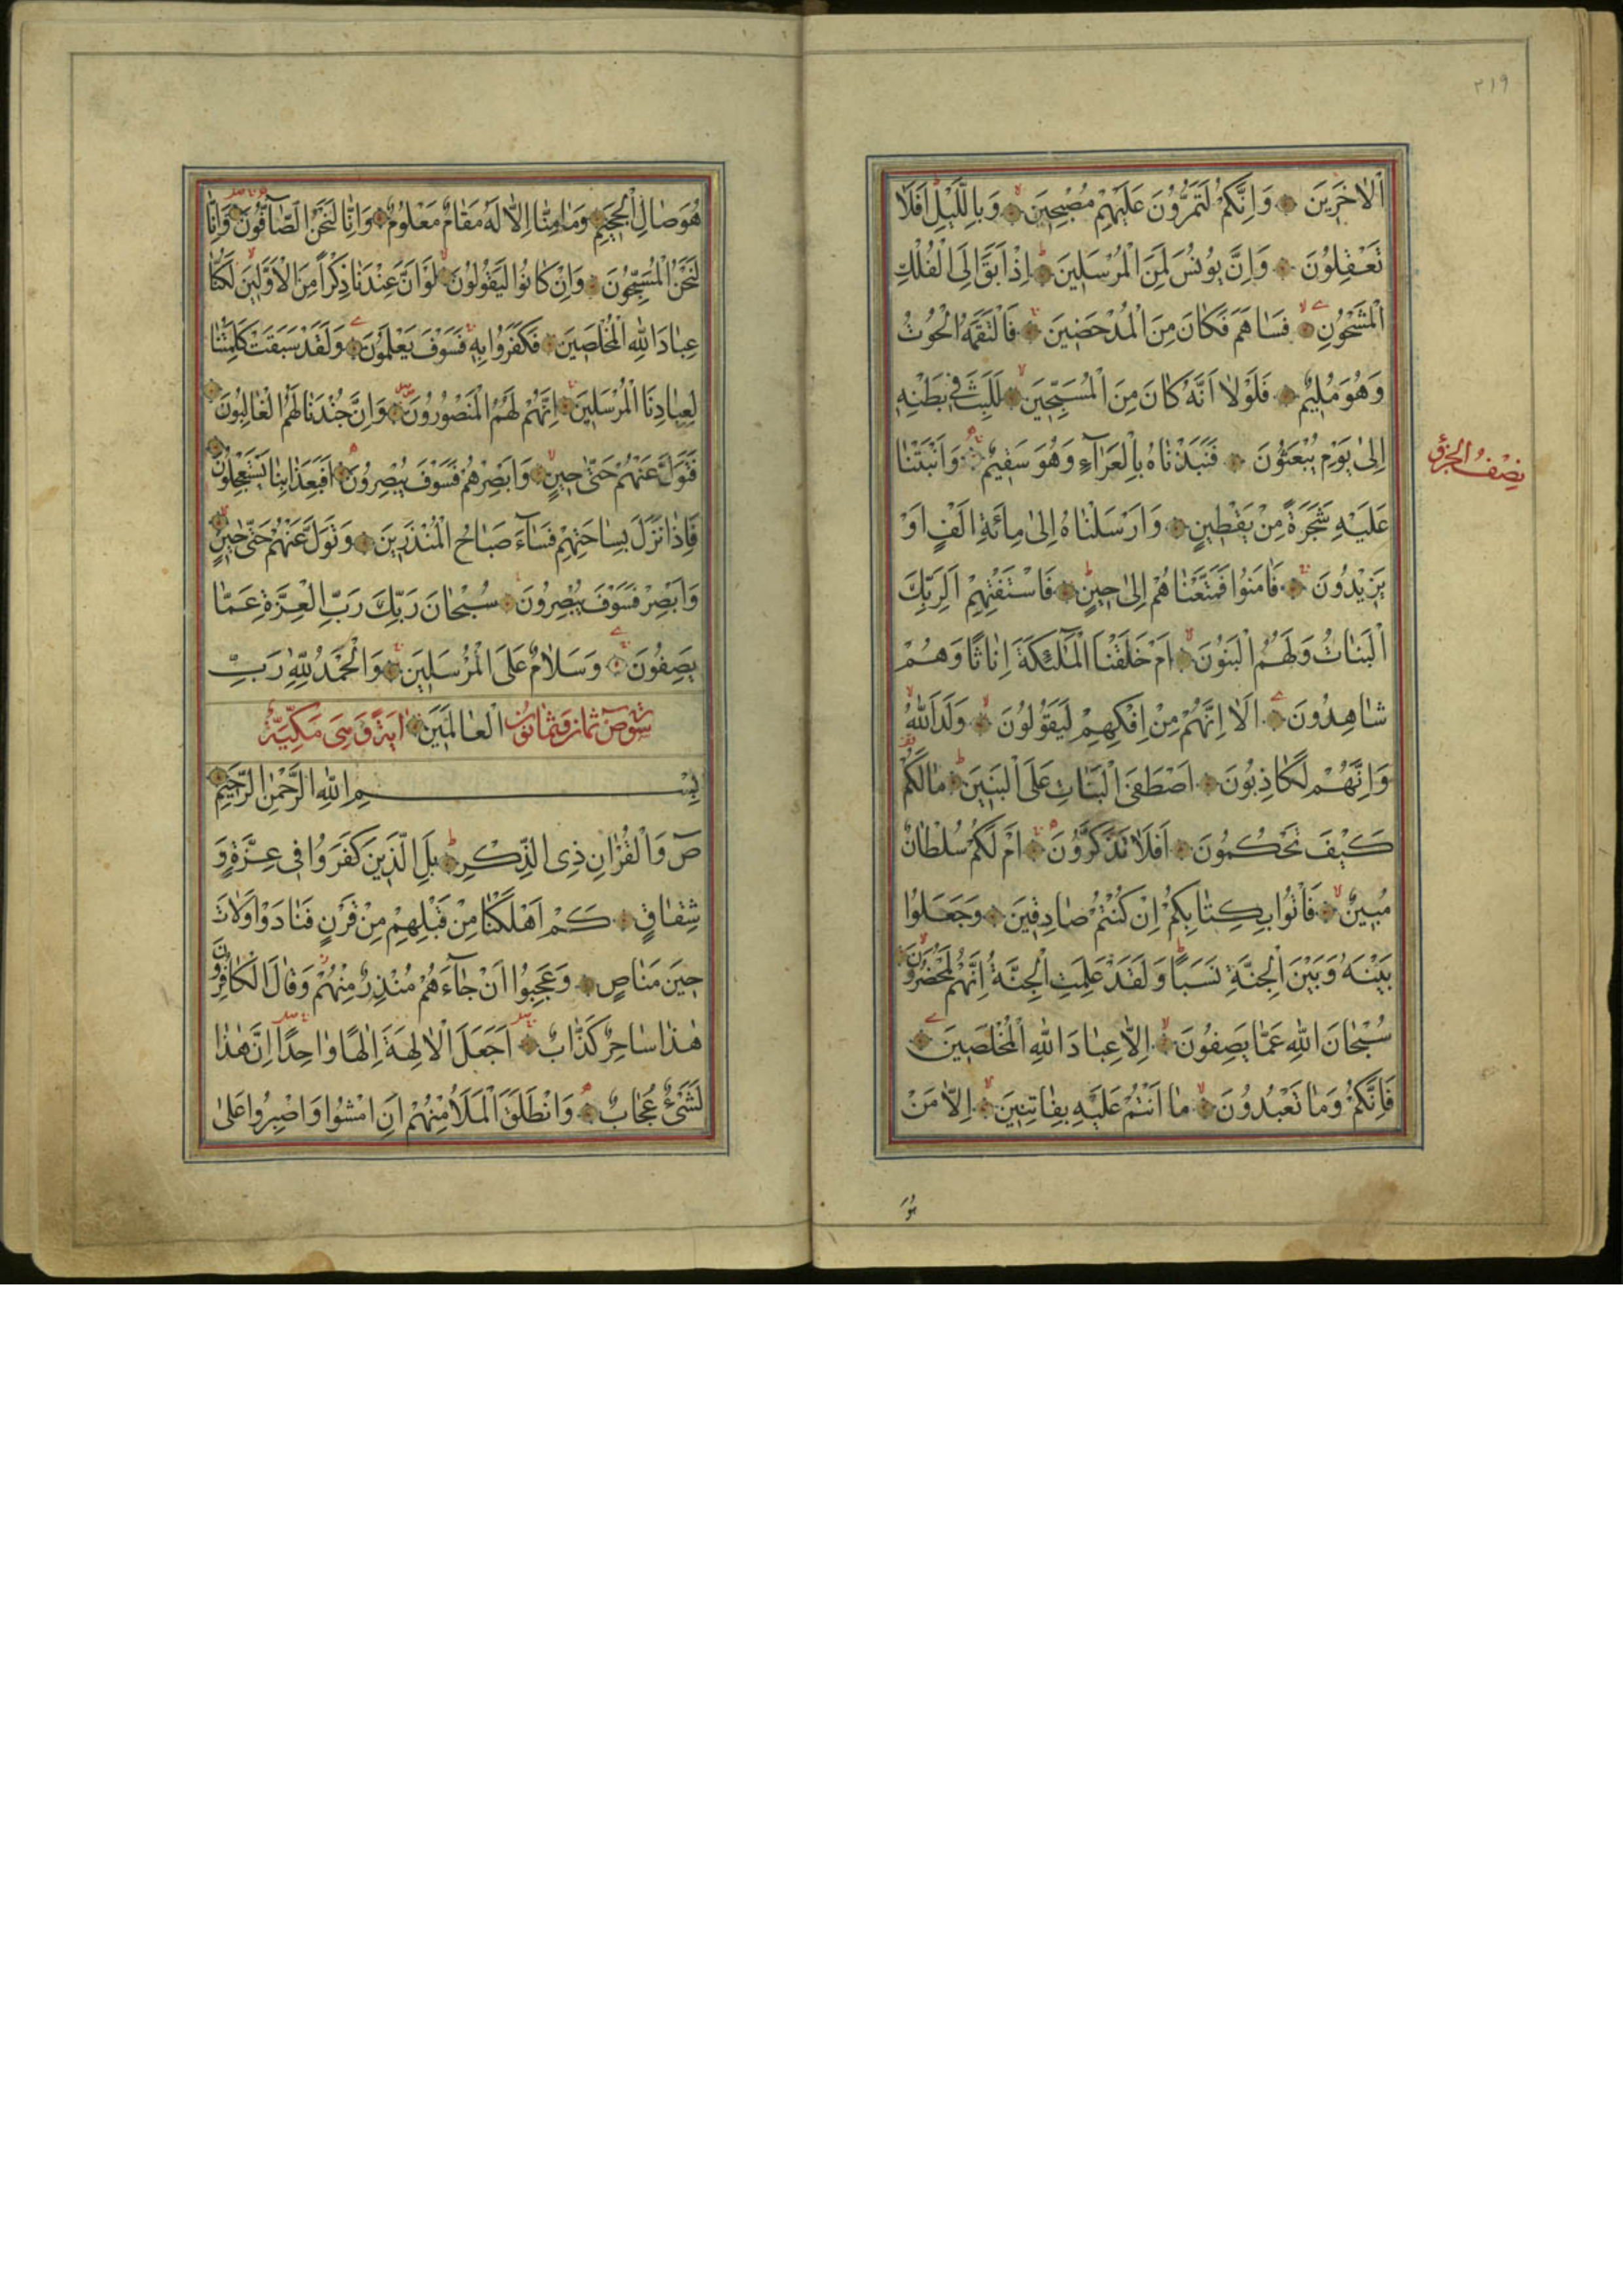 ٢١٩
اْلاٰخَرِينَ وَاِنَّكُمْ لَتَمُرُّونَ عَلَيْهِمْ مُصْبِحِينَ وَبِالَّيْلِ اَفَلَا
تَعْقِلُونَ وَاِنَّ يُونُسَ لَمِنَ الْمُرْسَلِينَ اِذْ اَبَقَ اِلَى الْفُلْكِ
الْمَشْحُونِ فَسَاهَمَ فَكَانَ مِنَ الْمُدْحَضِينَ فَالْتَقَمَهُ الْحُوتُ
وَهُوَ مُلِيمٌ فَلَوْلَا اَنَّهُ كَانَ مِنَ الْمُسَبِّحِينَ لَلَبِثَ فِي بَطْنِهِ
اِلٰى يَوْمِ يُبْعَثُونَ فَنَبَذْنَاهُ بِالْعَرَآءِ وَهُوَ سَقِيمٌ وَاَنْبَتْنَا
نِصْفُ الجُزْءِ
عَلَيْهِ شَجَرَةً مِنْ يَقْطِينٍ وَاَرْسَلْنَاهُ اِلٰى مِائَةِ اَلْفٍ اَوْ
يَزِيدُونَ فَاٰمَنُوا فَمَتَّعْنَاهُمْ اِلٰى حِينٍ فَاسْتَفْتِهِمْ اَلِرَبِّكَ
الْبَنَاتُ وَلَهُمُ الْبَنُونَ اَمْ خَلَقْنَا الْمَلٰٓئِكَةَ اِنَاثًا وَهُمْ
شَاهِدُونَ اَلَا اِنَّهُمْ مِنْ اِفْكِهِمْ لَيَقُولُونَ وَلَدَ اللّٰهُ
وَاِنَّهُمْ لَكَاذِبُونَ اَصْطَفَى الْبَنَاتِ عَلَى الْبَنِينَ مَالَكُمْ
كَيْفَ تَحْكُمُونَ اَفَلَا تَذَكَّرُونَ اَمْ لَكُمْ سُلْطَانٌ
مُبِينٌ فَاْتُوا بِكِتَابِكُمْ اِنْ كُنْتُمْ صَادِقِينَ وَجَعَلُوا
بَيْنَهُ وَبَيْنَ الْجِنَّةِ نَسَبًا وَلَقَدْ عَلِمَتِ الْجِنَّةُ اِنَّهُمْ لَمُحْضَرُونَ
سُبْحَانَ اللّٰهِ عَمَّا يَصِفُونَ اِلَّا عِبَادَ اللّٰهِ الْمُخْلَصِينَ
فَاِنَّكُمْ وَمَا تَعْبُدُونَ مَا اَنْتُمْ عَلَيْهِ بِفَاتِنِينَ اِلَّا مَنْ
هُوَ
هُوَ صَالِ الْجَحِيمِ وَمَا مِنَّا اِلَّا لَهُ مَقَامٌ مَعْلُومٌ وَاِنَّا لَنَحْنُ الصَّآفُّونَ وَاِنَّا
لَنَحْنُ الْمُسَبِّحُونَ وَاِنْ كَانُوا لَيَقُولُونَ لَوْ اَنَّ عِنْدَنَا ذِكْرًا مِنَ الْاَوَّلِينَ لَكُنَّا
عِبَادَ اللّٰهِ الْمُخْلَصِينَ فَكَفَرُوا بِهِ فَسَوْفَ يَعْلَمُونَ وَلَقَدْ سَبَقَتْ كَلِمَتُنَا
لِعِبَادِنَا الْمُرْسَلِينَ اِنَّهُمْ لَهُمُ الْمَنْصُورُونَ وَاِنَّ جُنْدَنَا لَهُمُ الْغَالِبُونَ
فَتَوَلَّ عَنْهُمْ حَتّٰى حِينٍ وَاَبْصِرْهُمْ فَسَوْفَ يُبْصِرُونَ اَفَبِعَذَابِنَا يَسْتَعْجِلُونَ
فَاِذَا نَزَلَ بِسَاحَتِهِمْ فَسَآءَ صَبَاحُ الْمُنْذَرِينَ وَتَوَلَّ عَنْهُمْ حَتّٰى حِينٍ
وَاَبْصِرْ فَسَوْفَ يُبْصِرُونَ سُبْحَانَ رَبِّكَ رَبِّ الْعِزَّةِ عَمَّا
يَصِفُونَ وَسَلَامٌ عَلَى الْمُرْسَلِينَ وَالْحَمْدُ لِلّٰهِ رَبِّ
سُورَةُ صٓ ثَمَانٌ وَثَمَانُونَ الْعَالَمِينَ اٰيَةً وَهِيَ مَكِّيَّةٌ
بِسْمِ اللّٰهِ الرَّحْمٰنِ الرَّحِيمِ
صٓ وَالْقُرْاٰنِ ذِي الذِّكْرِ بَلِ الَّذِينَ كَفَرُوا فِي عِزَّةٍ وَ
شِقَاقٍ كَمْ اَهْلَكْنَا مِنْ قَبْلِهِمْ مِنْ قَرْنٍ فَنَادَوْا وَلَاتَ
حِينَ مَنَاصٍ وَعَجِبُوا اَنْ جَآءَهُمْ مُنْذِرٌ مِنْهُمْ وَقَالَ الْكَافِرُونَ
هٰذَا سَاحِرٌ كَذَّابٌ اَجَعَلَ الْاٰلِهَةَ اِلٰهًا وَاحِدًا اِنَّ هٰذَا
لَشَيْءٌ عُجَابٌ وَانْطَلَقَ الْمَلَأُ مِنْهُمْ اَنِ امْشُوا وَاصْبِرُوا عَلٰى